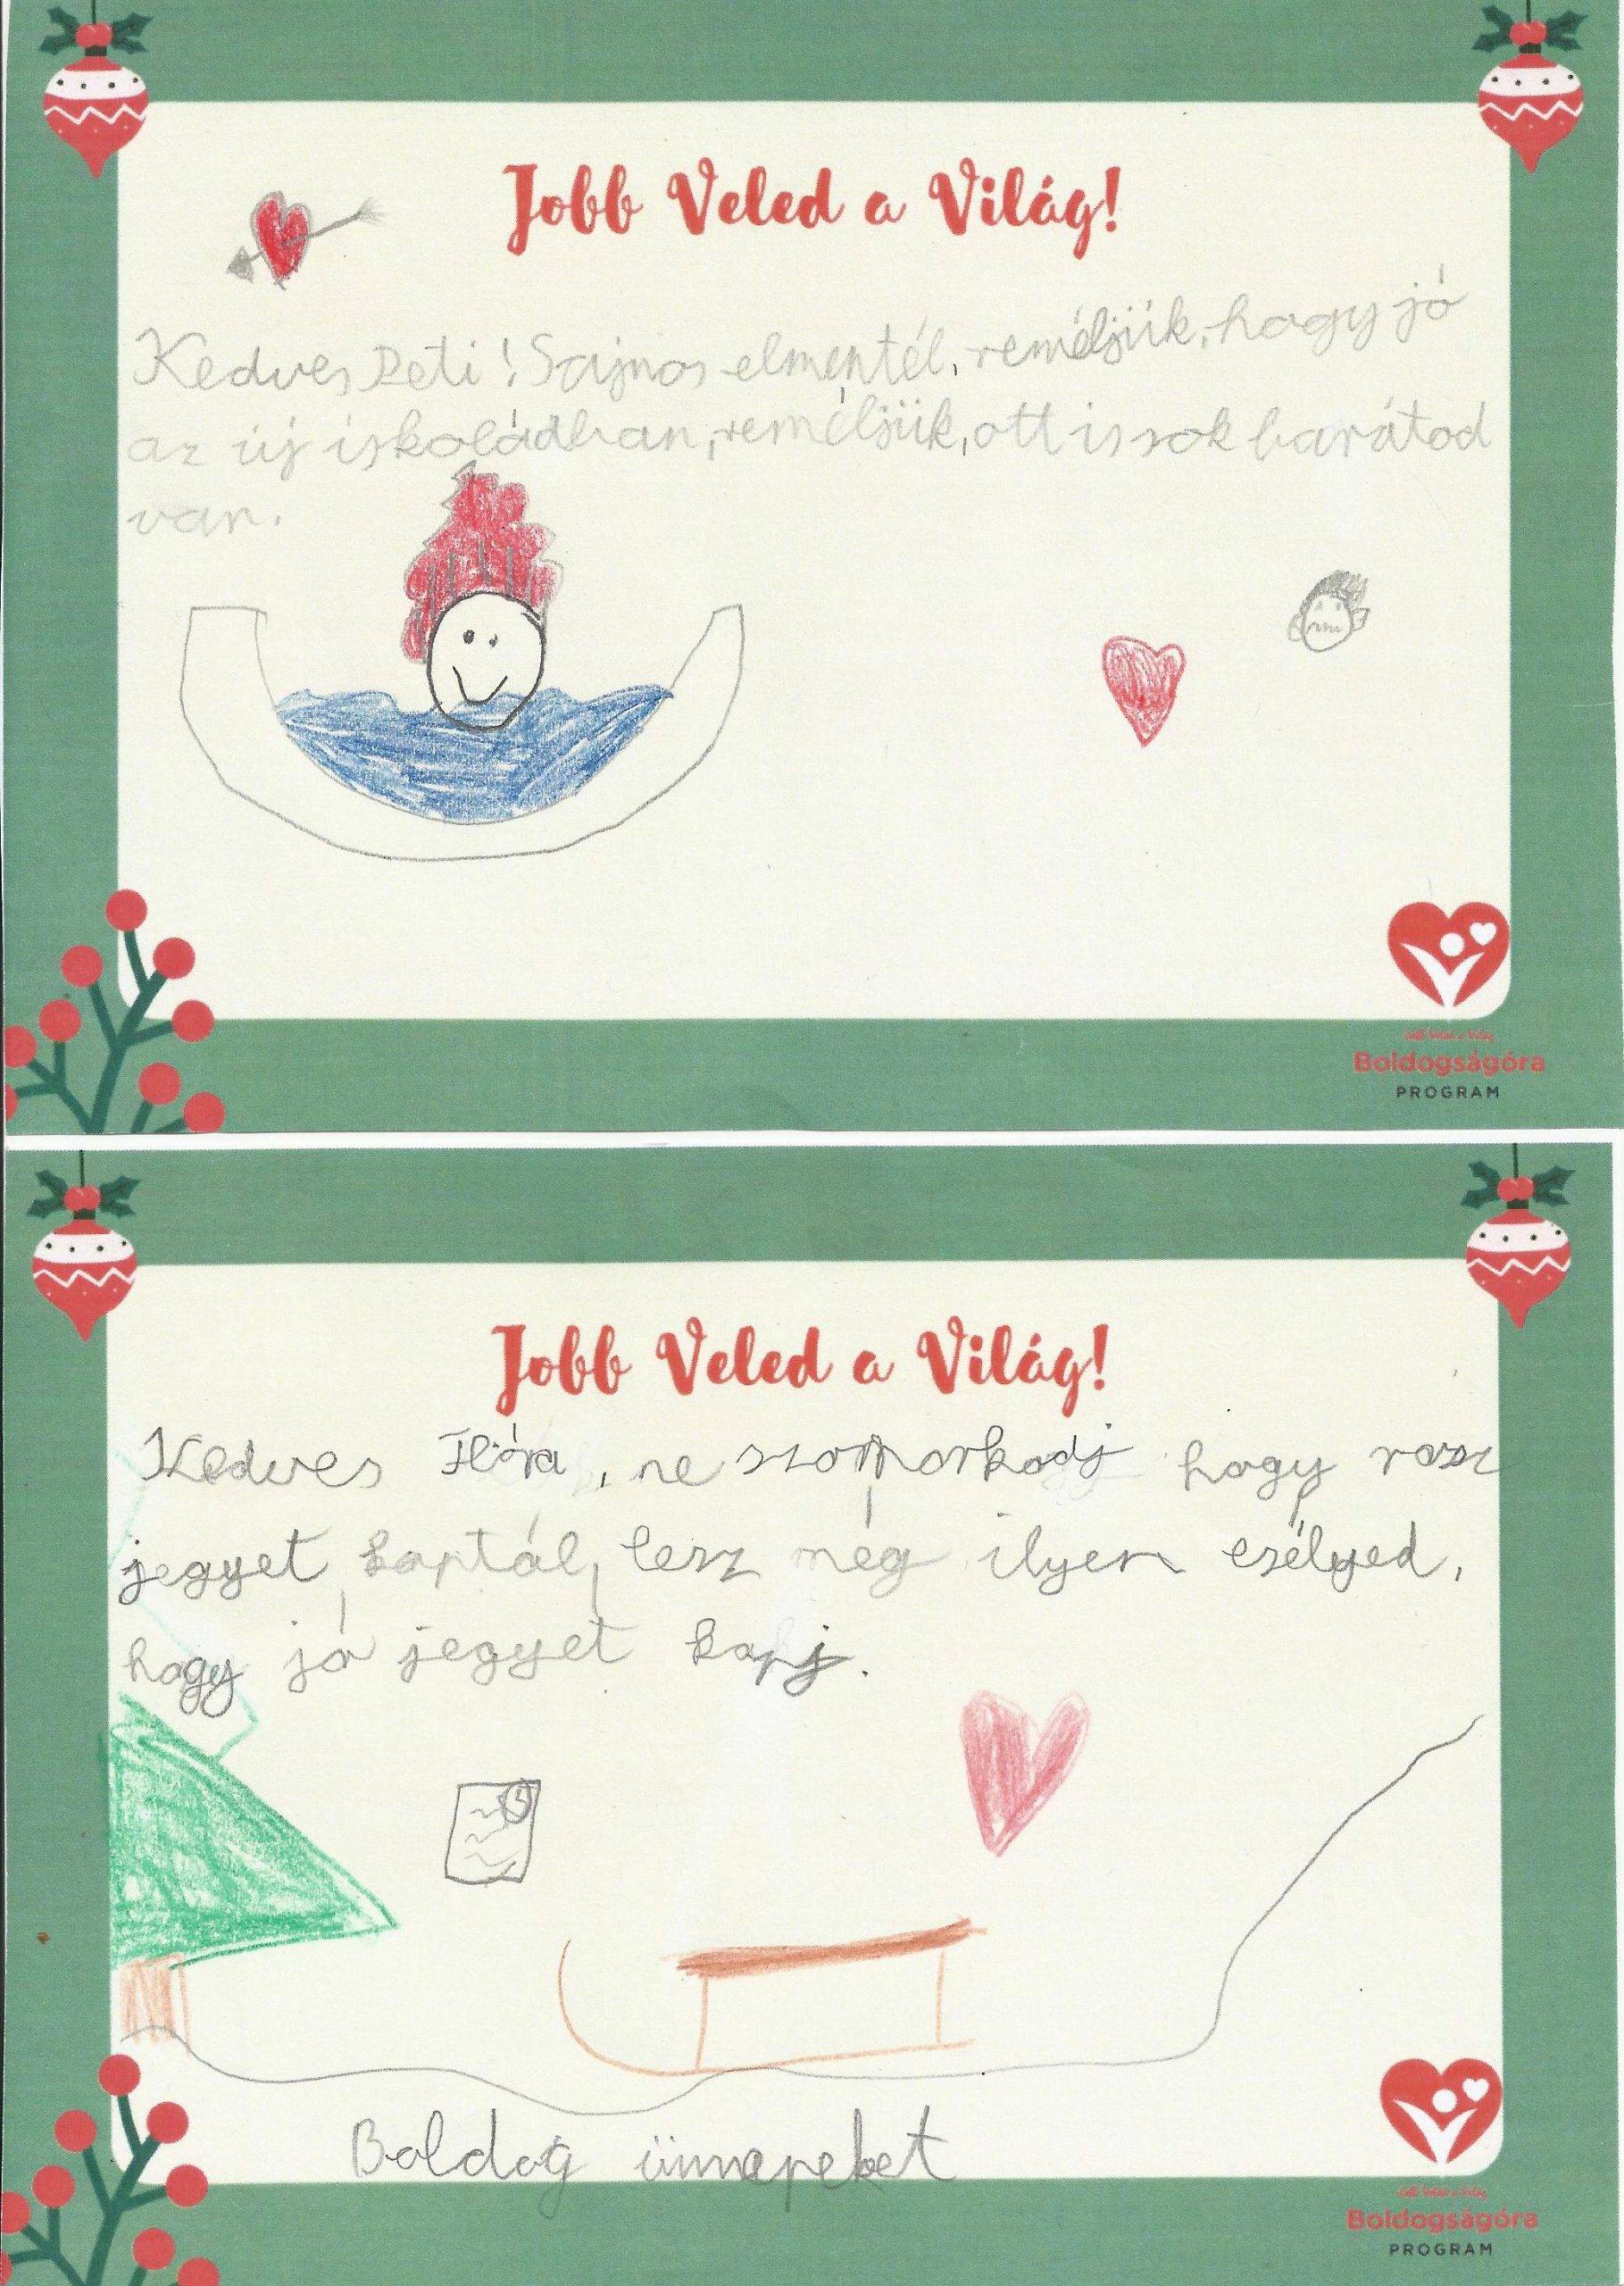 Jobb Veled a Világ!
Kedves Peti! Sajnos elmentél, reméljük, hogy jó
az új iskoládban, reméljük, ott is sok barátod
van.
Jobb Veled a Világ
Boldogságóra
PROGRAM
Jobb Veled a Világ!
Kedves Flóra, ne szomorkodj hogy rossz
jegyet kaptál, lesz még ilyen esélyed,
hogy jó jegyet kapj.
Boldog ünnepeket
Jobb Veled a Világ
Boldogságóra
PROGRAM